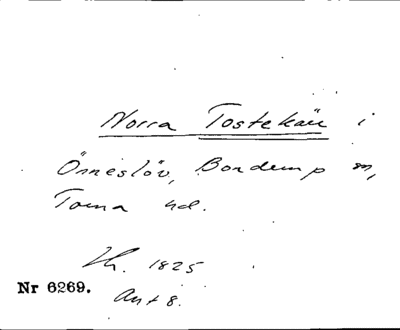 Norra Tostekärr i
Önneslöv, Bonderup sn,
Torna hd.
1825
Nr 6269.
Akt 8.